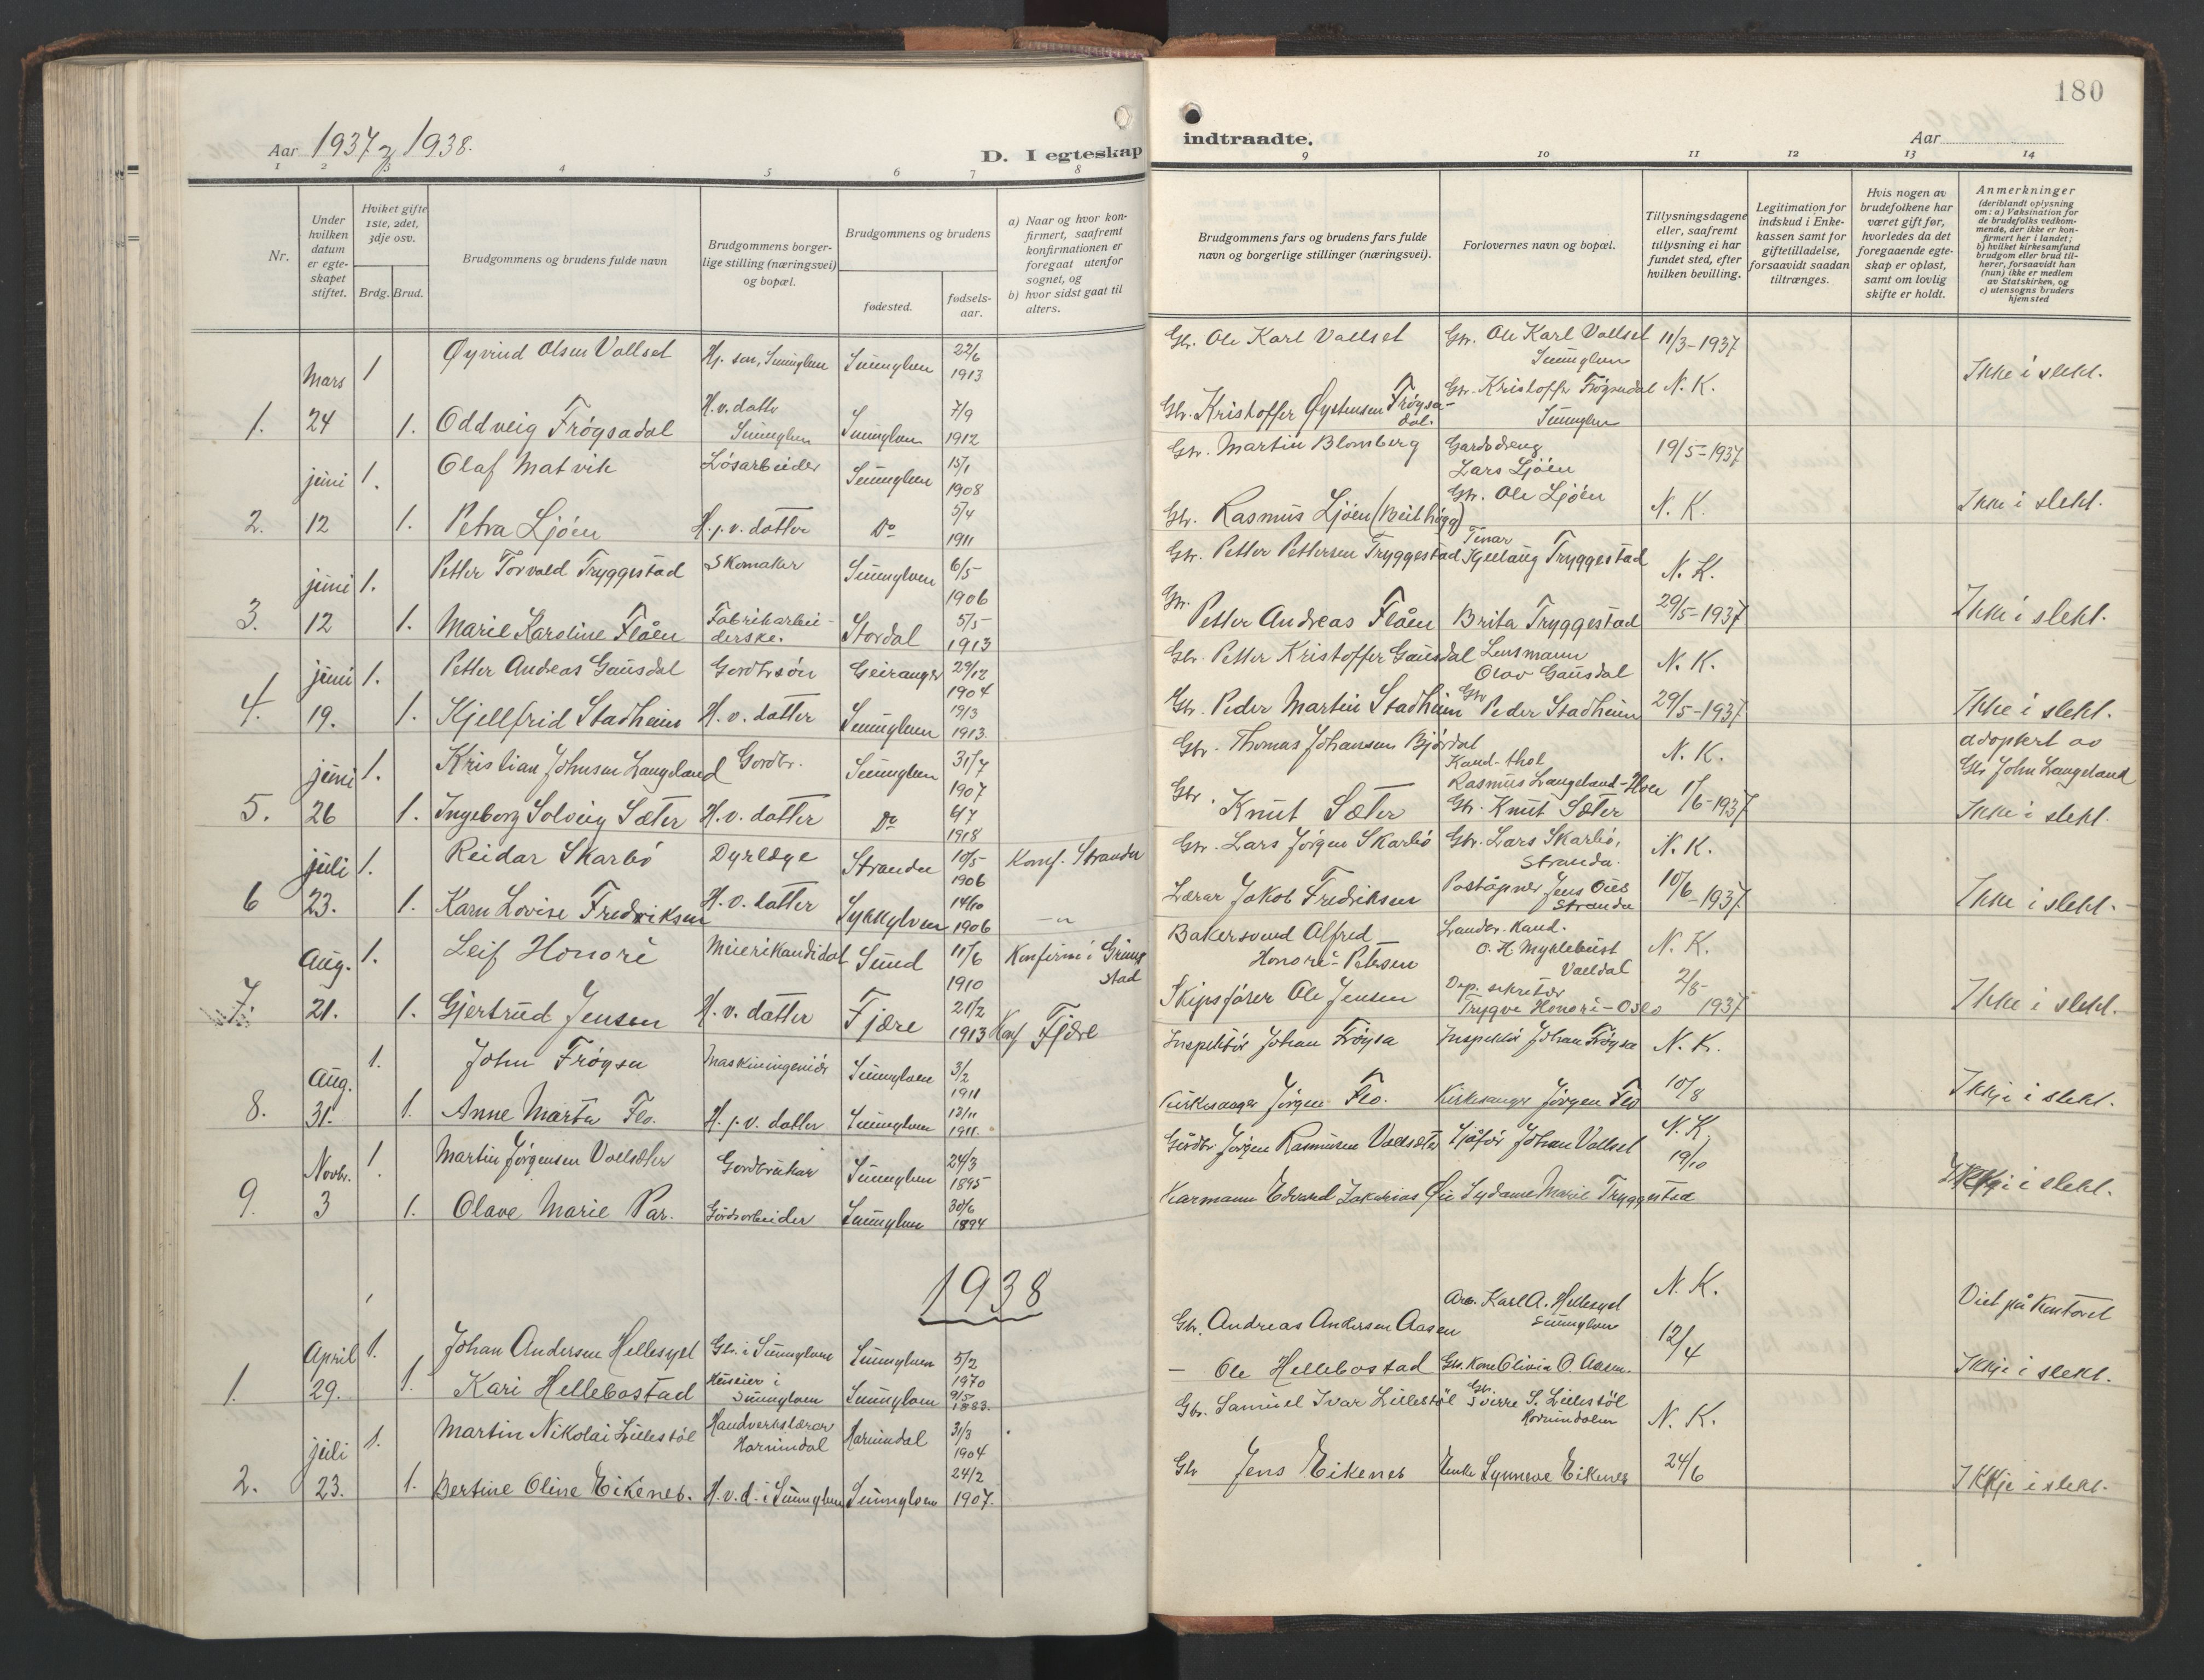 180
Aar 1937 og 1938.
D. I egteskap
indtraadte.
Aar
1 2 3 4 5 6 7 8
9 10 11 12 13 14
Nr.
Under hvilken datum er egteskapet stiftet.
Hviket gifte 1ste, 2det, 3dje osv.
Brdg. Brud.
Brudgommens og brudens fulde navn
Brudgommens borgerlige stilling (næringsvei) og bopæl.
Brudgommens og brudens
fødested.
fødselsaar.
a) Naar og hvor konfirmert, saafremt konfirmationen er foregaat utenfor sognet, og
b) hvor sidst gaat til alters.
Brudgommens fars og brudens fars fulde navn og borgerlige stillinger (næringsvei).
Forlovernes navn og bopæl.
Tillysningsdagene eller, saafremt tillysning ei har fundet sted, efter hvilken bevilling.
Legitimation for indskud i Enkekassen samt for giftetilladelse, forsaavidt saadan tiltrænges.
Hvis nogen av brudefolkene har været gift før, hvorledes da det foregaaende egteskap er opløst, samt om lovlig skifte er holdt.
Anmerkninger (deriblandt oplysning om: a) Vaksination for de brudefolks vedkommende, der ikke er konfirmert her i landet; b) hvilket kirkesamfund brudgom eller brud tilhører, forsaavidt han (hun) ikke er medlem av Statskirken, og c) utensogns bruders hjemsted
Mars 1 Øyvind Olsen Vollset Sunnylven 22/6 1913 Gbr. Ole Karl Vollset Gbr. Ole Karl Vollset Sunnylven 11/3-1937
1. 24 1. Oddveig Frøysadal H.v. datter Sunnylven Sunnylven 7/9 1912 Gbr. Kristoffer Øystensen Frøysadal. Gbr. Kristoffer Frøysadal Sunnylven N. K. Ikke i slekt.
juni 1. Olaf Matvik Løsarbeider Sunnylven 15/1 1908 Gbr. Martin Blomberg Gardsdreng Lars Ljøen 19/5-1937
2. 12 1. Petra Ljøen H.j.v. datter Do 5/4 1911 Gbr. Rasmus Ljøen Gbr. Ole Ljøen N. K. Ikke i slekt.
juni 1. Petter Torvald Tryggestad Skomaker Sunnylven 6/5 1906 Gbr. Petter Pettersen Tryggestad Kjellaug Tryggestad N. K.
3. 12 1. Marie Karoline Flåen Fabrikarbeiderske. Stordal 5/5 1913 Gbr. Petter Andreas Flåen Brita Tryggestad 29/5-1937 Ikke i slekt.
juni 1. Petter Andreas Gausdal Gordbrsøn Geiranger 29/12 1904 Gbr. Petter Kristoffer Gausdal Lensmann Olav Gausdal N. K.
4. 19. 1. Kjellfrid Stadheim H. v. datter Sunnylven 19/3 1913. Gbr. Peder Martin Stadheim Gbr Peder Stadheim 29/5-1937 Ikke i slekt.
juni 1. Kristian Johnsen Langeland Gordbr. Sunnylven 31/7 1907 Gbr. Thomas Johansen Bjørdal Kand. theol Rasmus Langeland N. K. adoptert av Gbr John Langeland
5. 26 1. Ingeborg Solveig Sæter H. v. datter Do 4/7 1918 Gbr. Knut Sæter Gbr. Knut Sæter 1/6-1937 Ikke i slekt.
juli 1. Reidar Skarbø Dyrlæge Stranda 10/5 1906 Konf. Stranda Gbr. Lars Jørgen Skarbø Gbr. Lars Skarbø, Stranda. N. K.
6 23. 1. Karn Lovise Fredriksen H. v. datter Sykkylven 14/10 1906 —"— Lærar Jakob Fredriksen Postopner Jens Ous Stranda 10/6-1937 Ikke i slekt.
Aug. 1. Leif Honoré Meierikandidat Sund 11/6 1910 Konfirm i Grimstad Bakersvend Alfred Honoré-Petersen Landbr. Kand. O. H. Myklebust Valldal N. K.
7. 21. 1. Gjertrud Jensen H. v. datter Fjære 21/2 1913 Konf Fjære Skipsfører Ole Jensen Dep. sekretær Trygve Honoré-Oslo 2/8-1937 Ikke i slekt.
Aug. 1. John Frøysa Maskiningeniør Sunnylven 3/2 1911 Inspektør Johan Frøysa Inspektør Johan Frøysa N. K.
8. 31. 1. Anne Marta Flo. H.j.v. datter Sunnylven 12/11 1911. Kirkesanger Jørgen Flo. Kirkesanger Jørgen Flo 10/8 Ikkje i slekt.
Novbr. 1. Martin Jørgensen Vollsæter Gordbrukar Sunnylven 24/3 1895 Gordbr Jørgen Rasmusen Vollsæter Sjåfør Johan Vollset N. K.
9. 3 1. Olave Marie Par. Gardsarbeider Sunnylven 30/6 1894 Karmann Edvard Zakarias Øie Sydame Marie Tryggestad 19/10 Ikkje i slekt.
1938
April 1. Johan Andersen Hellesylt Gbr. i Sunnylven Sunnylven 5/2 1970 Gbr. Andreas Andersen Aasen Arb. Karl A. Hellesylt Sunnylven N. K. Viet på kontoret
1. 29. 1. Kari Hellebostad Huseier i Sunnylven Sunnylven 9/5 1883. — Ole Hellebostad Gbr. Kone Olivia O Aasen. 12/4 Ikkje i slekt.
juli 1. Martin Nikolai Lillestøl Handverkslærar Hornindal Hornindal 31/3 1904 Gbr. Samuel Ivar Lillestøl Gbr. Sverre S. Lillestøl Hornindalen N. K.
2. 23. 1. Bertine Oline Eikenes. H.v.d. i Sunnylven Sunnylven 24/2 1907. Gbr Jens Eikenes Enke Synneve Eikenes 24/6 Ikkje i slekt.